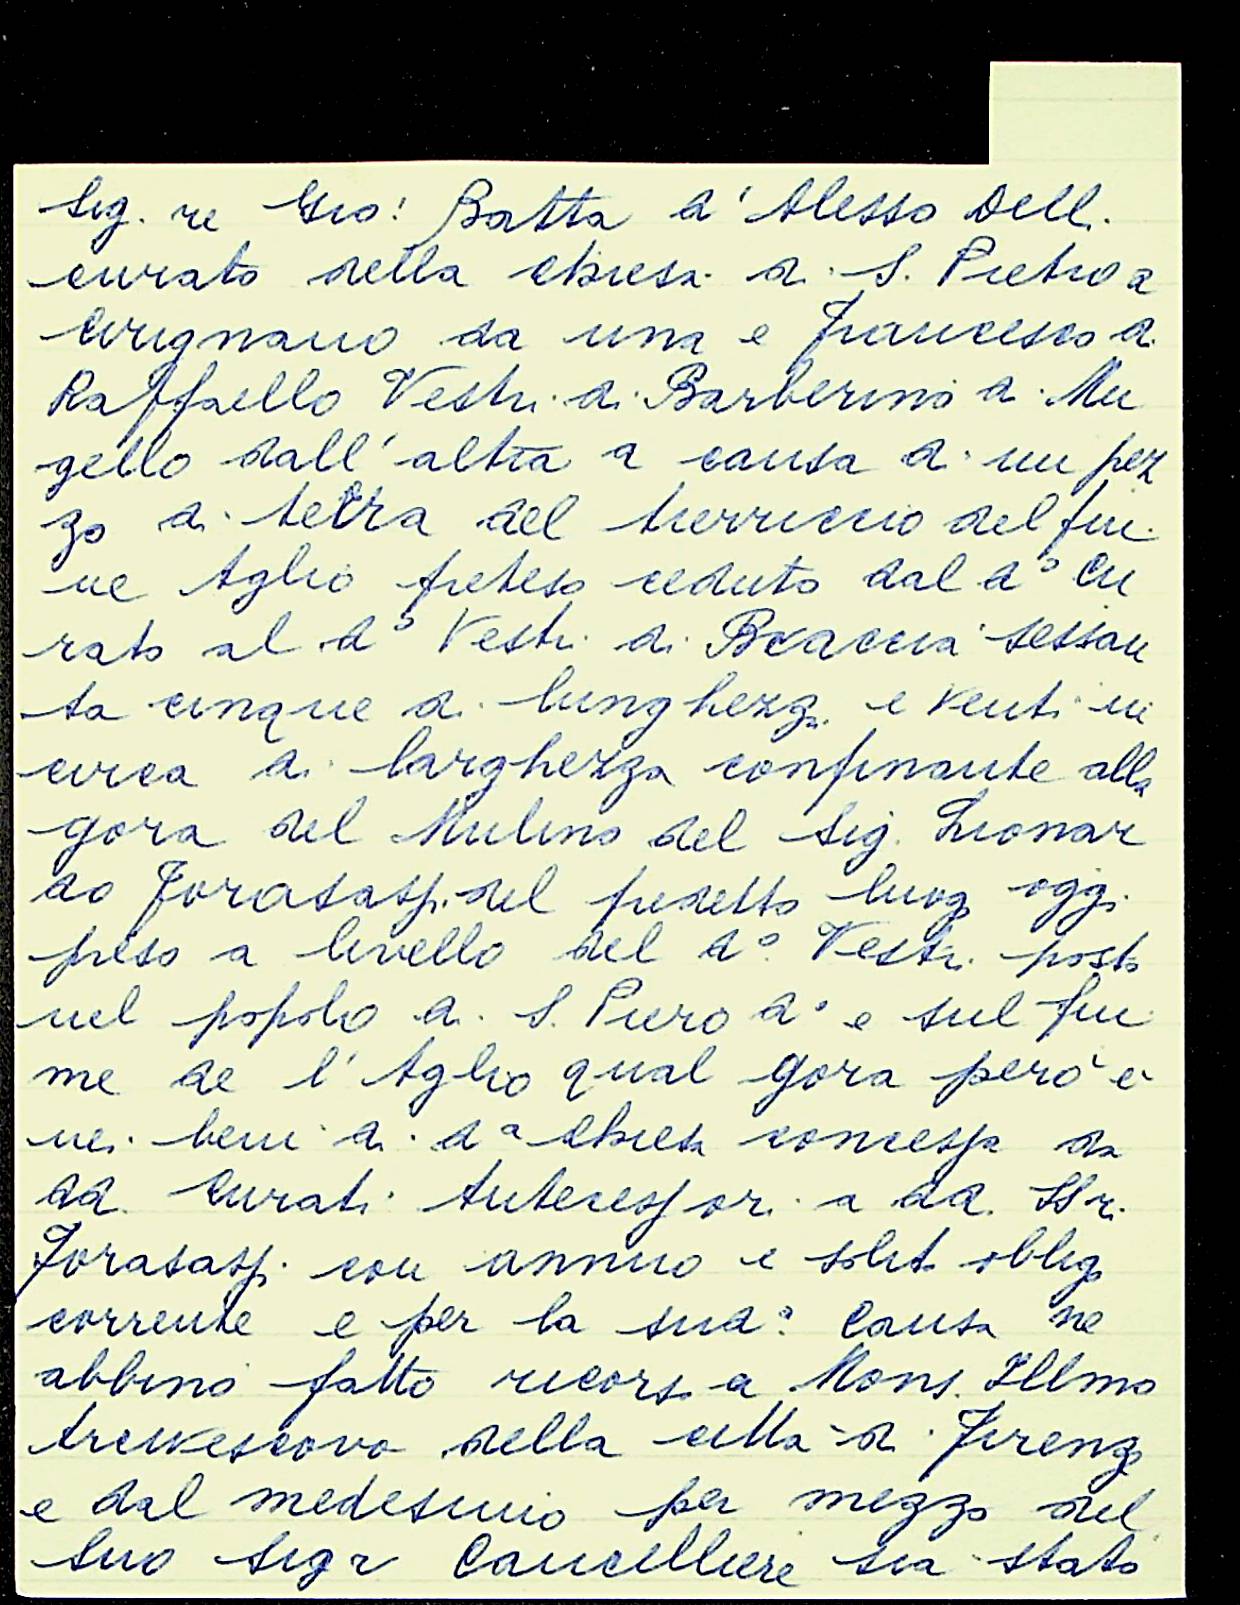 Sig. re Gio: Batta d'Alesso Dell.
curato della chiesa di S. Pietro a
Cirignano da una e Francesco di
Raffaello Vestri di Barberino di Mu
gello dall'altra a causa di un pez
zo di terra del renniccio del fiu
me Aglio preteso ceduto dal do Cu
rato al do Vestri di Braccia sessan
ta cinque di lunghezz. e Venti in
circa di larghezza confinante alla
gora del Mulino del Sig. Lionar
do Forasassi del predetto luog. oggi
preso a livello del do. Vestri posto
nel popolo di S. Piero do e sul fiu
me de l'Aglio qual gora però è
nei beni di da Chiesa concessa da
dd. Curati Antecessori a dd. SSri.
Forasassi con annuo e solit. obblig.
corrente e per la suda. Causa ne
abbino fatto ricors. a Mons. Illmo
Arcivescovo della città di Firenz.
e dal medesimo per mezzo del
suo Sigr Cancelliere sia stato